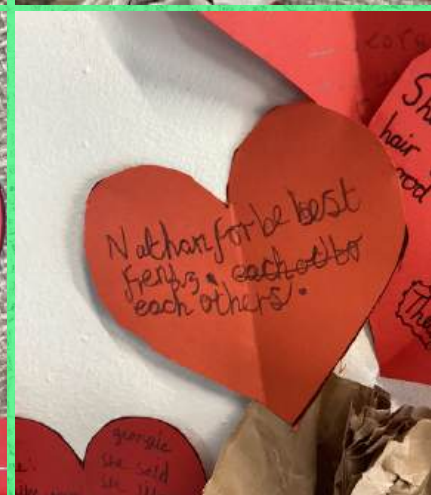 Nathan for be best
frenz. each ot to
each others.
She
hair
ood
The
georgie
she said
she